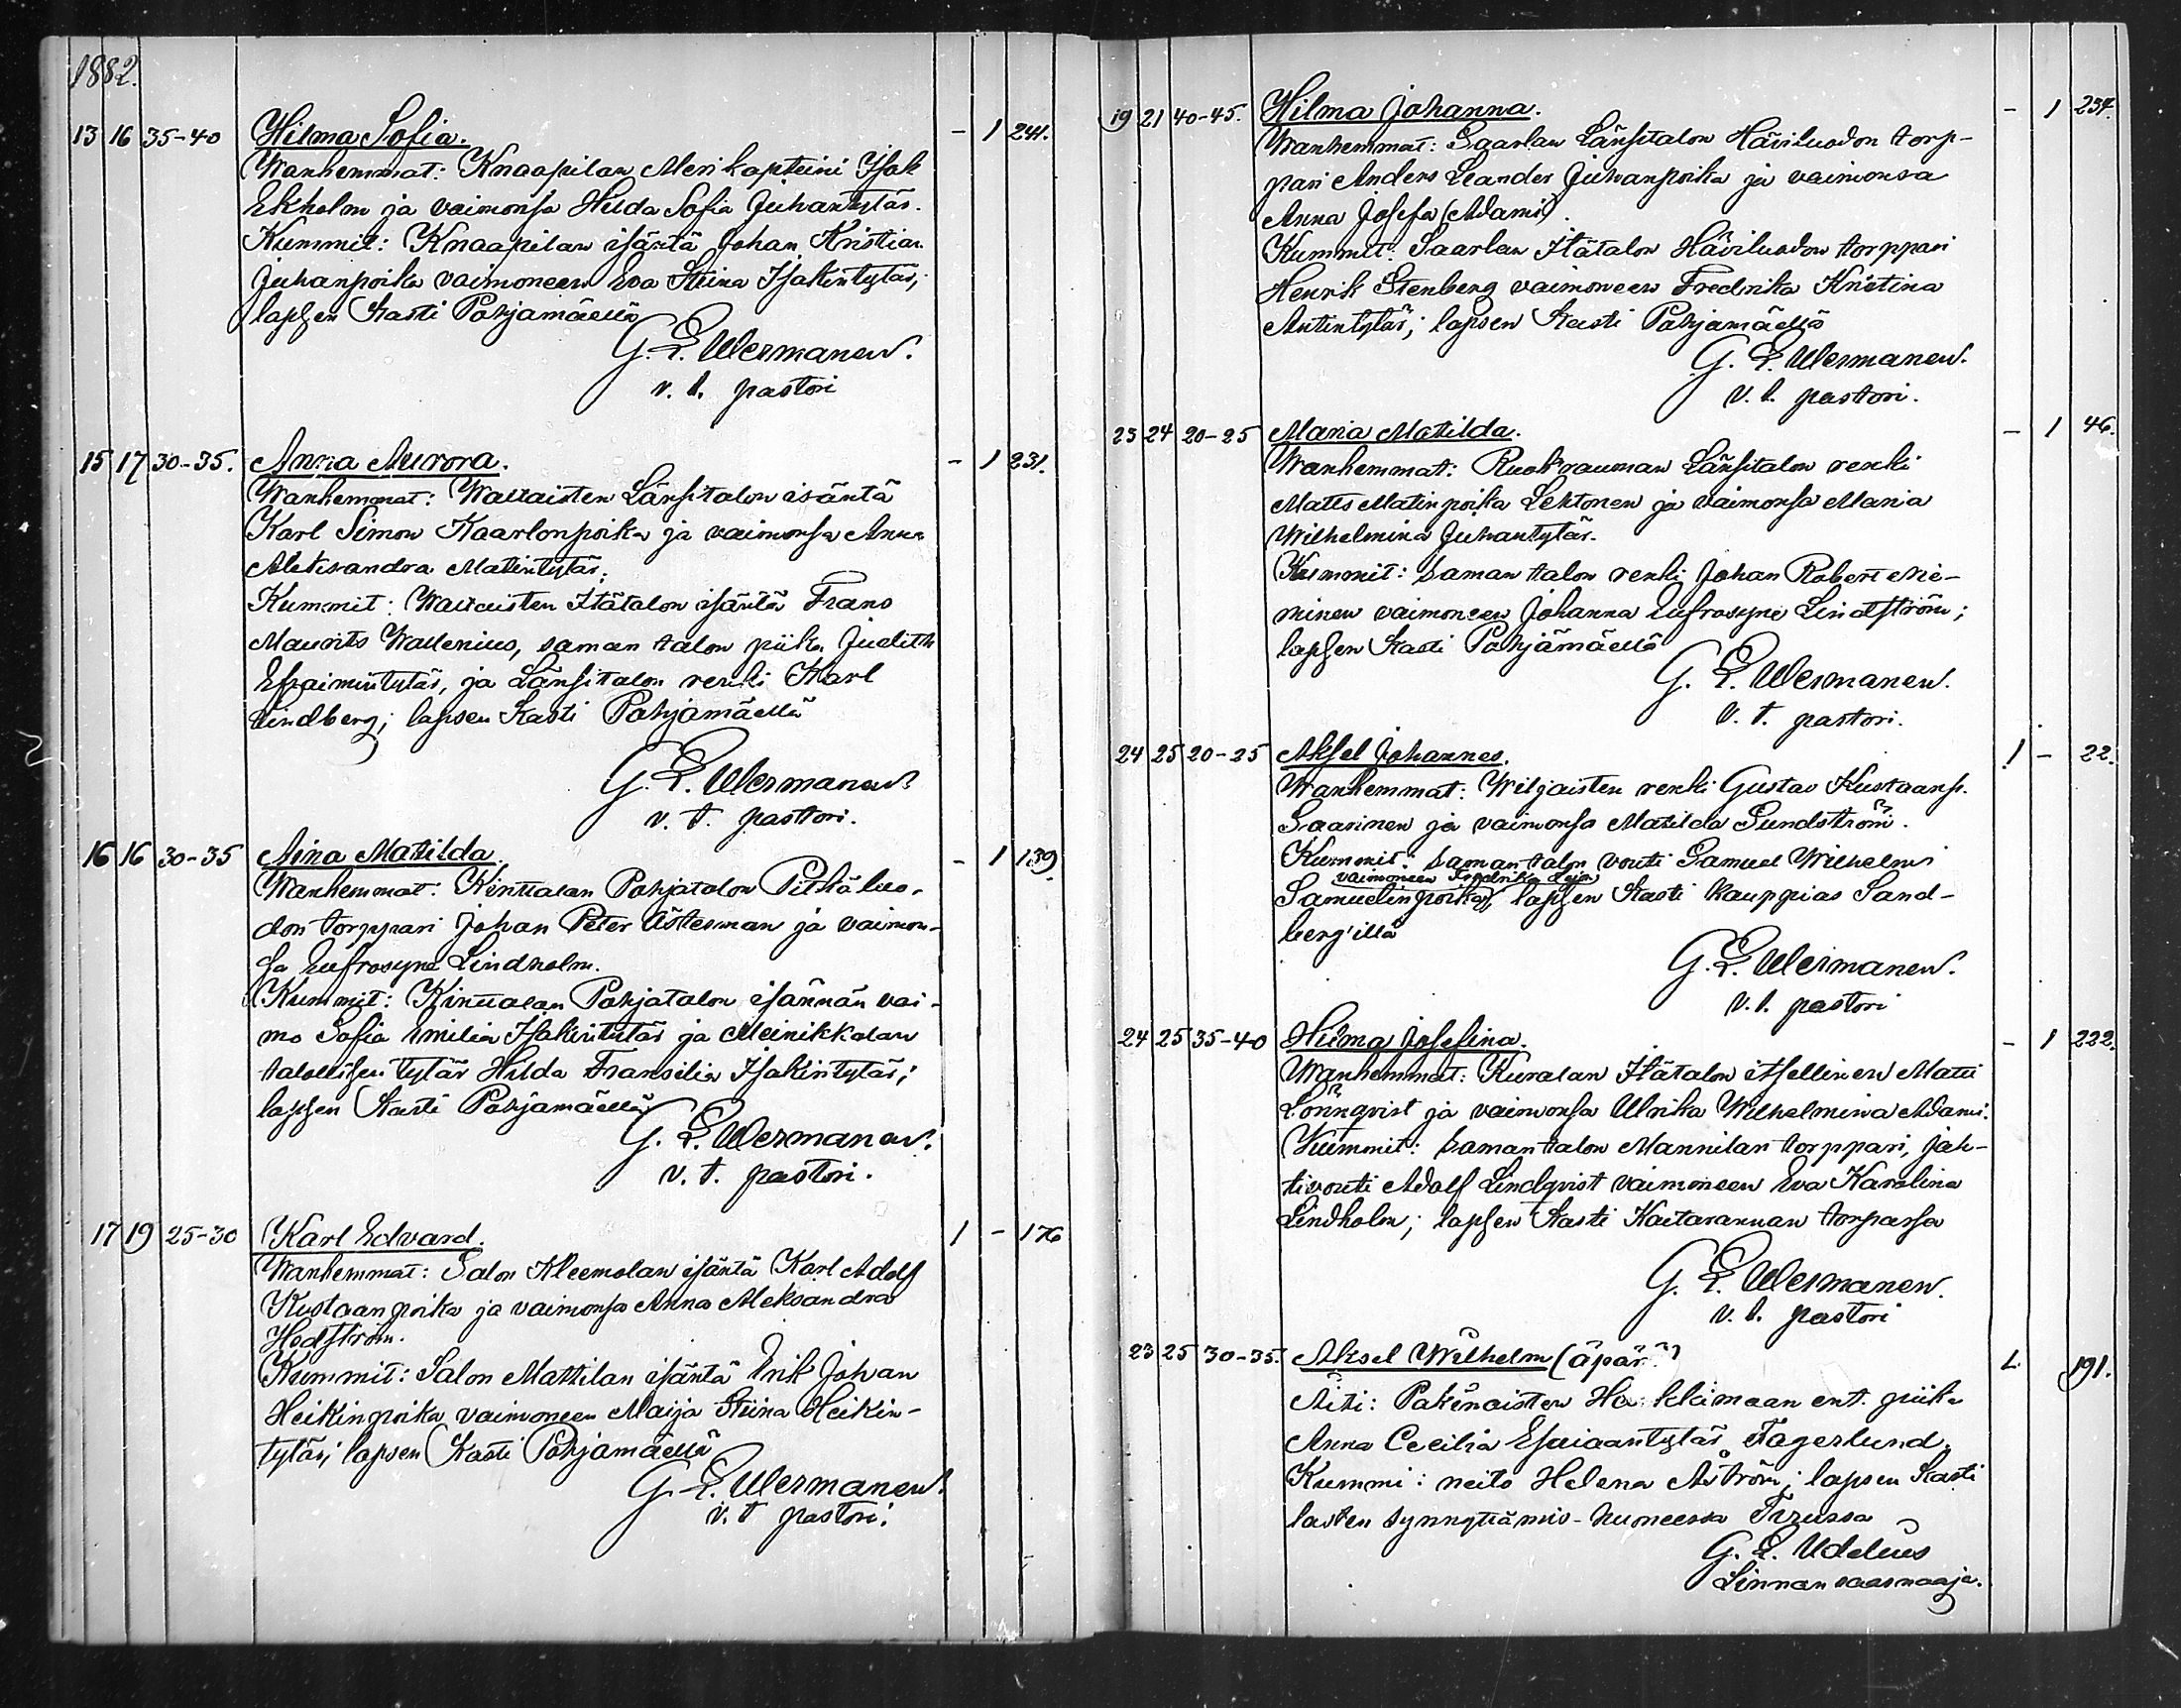 1882.
13 16 35-40 Hilma Sofia. - 1 241.
Wanhemmat: Knaapilan Merikapteini Isak
Ekholm ja vaimonsa Hilda Sofia Juhantytär.
Kummit: Knaapilan isäntä Johan Kristian
Juhanpoika vaimoneen Eva Stiina Isakintytär;
lapsen kasti Pohjamäellä
G. E. Wermanen.
v. t. pastori
15 17 30-35. Anna Aurora. - 1 231.
Wanhemmat: Länsitalon isäntä
Karl Simon Kaarlonpoika ja vaimonsa Anna
Aleksandra Matintytär.
Kummit: Itätalon isäntä Frans
Maurits Wallenius, saman talon piika Judith
Efraimintytär, ja Länsitalon renki Karl
Lindberg; lapsen kasti Pohjamäellä
G. E. Wermanen.
v. t. pastori.
16 16 30-35 Aina Matilda. - 1 139.
Wanhemmat: Pohjatalon Pitkäluo-
don torppari Johan Peter Österman ja vaimon-
sa Eufrosyne Lindholm.
Kummit: Pohjatalon isännän vai-
mo Sofia Emilia Isakintytär ja Meinikkalan
talollisen tytär Hilda Fransilia Isakintytär;
lapsen kasti Pohjamäellä
G. E. Wermanen.
v. t. pastori.
17 19 25-30 Karl Edvard. 1 - 176
Wanhemmat: Salon Kleemolan isäntä Karl Adolf
Kustaanpoika ja vaimonsa Anna Aleksandra
Hedström.
Kummit: Salon Mattilan isäntä Erik Johan
Heikinpoika vaimoneen Maija Stiina Heikin-
tytär; lapsen kasti Pohjamäellä
G. E. Wermanen.
v. t pastori.
19 21 40-45. Hilma Johanna. - 1 234.
Wanhemmat: Saarlan Länsitalon Häviluodon torp-
pari Anders Leander Juhanpoika ja vaimonsa
Anna Josefa (Adami).
Kummit: Saarlan Itätalon Häviluodon torppari
Henrik Stenberg vaimoneen Fredrika Kristina
Antintytär; lapsen kasti Pohjamäellä
G. E. Wermanen.
v. t. pastori.
23 24 20-25 Maria Matilda. - 1 46.
Wanhemmat: Ruokrauman Länsitalon renki
Matts Matinpoika Lehtonen ja vaimonsa Maria
Wilhelmina Juhantytär.
Kummit: saman talon renki Johan Robert Nie-
minen vaimoneen Johanna Eufrosyne Lindström;
lapsen kasti Pohjamäellä
G. E. Wermanen.
v. t. pastori.
24 25 20-25 Aksel Johannes. 1 - 22.
Wanhemmat: Wiljaisten renki Gustav Kustaanp.
Saarinen ja vaimonsa Matilda Sundström.
Kummit: saman talon vouti Samuel Wilhelm
vaimoneen Fredrika
Samuelinpoika, lapsen kasti kauppias Sand-
berg'illä
G. E. Wermanen.
v. t. pastori
24 25 35-40 Hilma Josefina. - 1 222.
Wanhemmat: Kuralan Itätalon itsellinen Matti
Lönnqvist ja vaimonsa Ulrika Wilhelmina Adami.
Kummit: saman talon Mannilan torppari, jah-
tivouti Adolf Lindqvist vaimoneen Eva Karolina
Lindholm; lapsen kasti Kaitarannan torpassa
G. E. Wermanen.
v. t. pastori
23 25 30-35. Aksel Wilhelm (äpär.) 1. 191.
Äiti: Pakinaisten ent. piika
Anna Cecilia Esaiaantytär Fagerlund.
Kummi: neito Helena Åström; lapsen kasti
lasten synnyttämis-huoneessa Turussa
G. E. Udelius
Linnan saarnaaja.